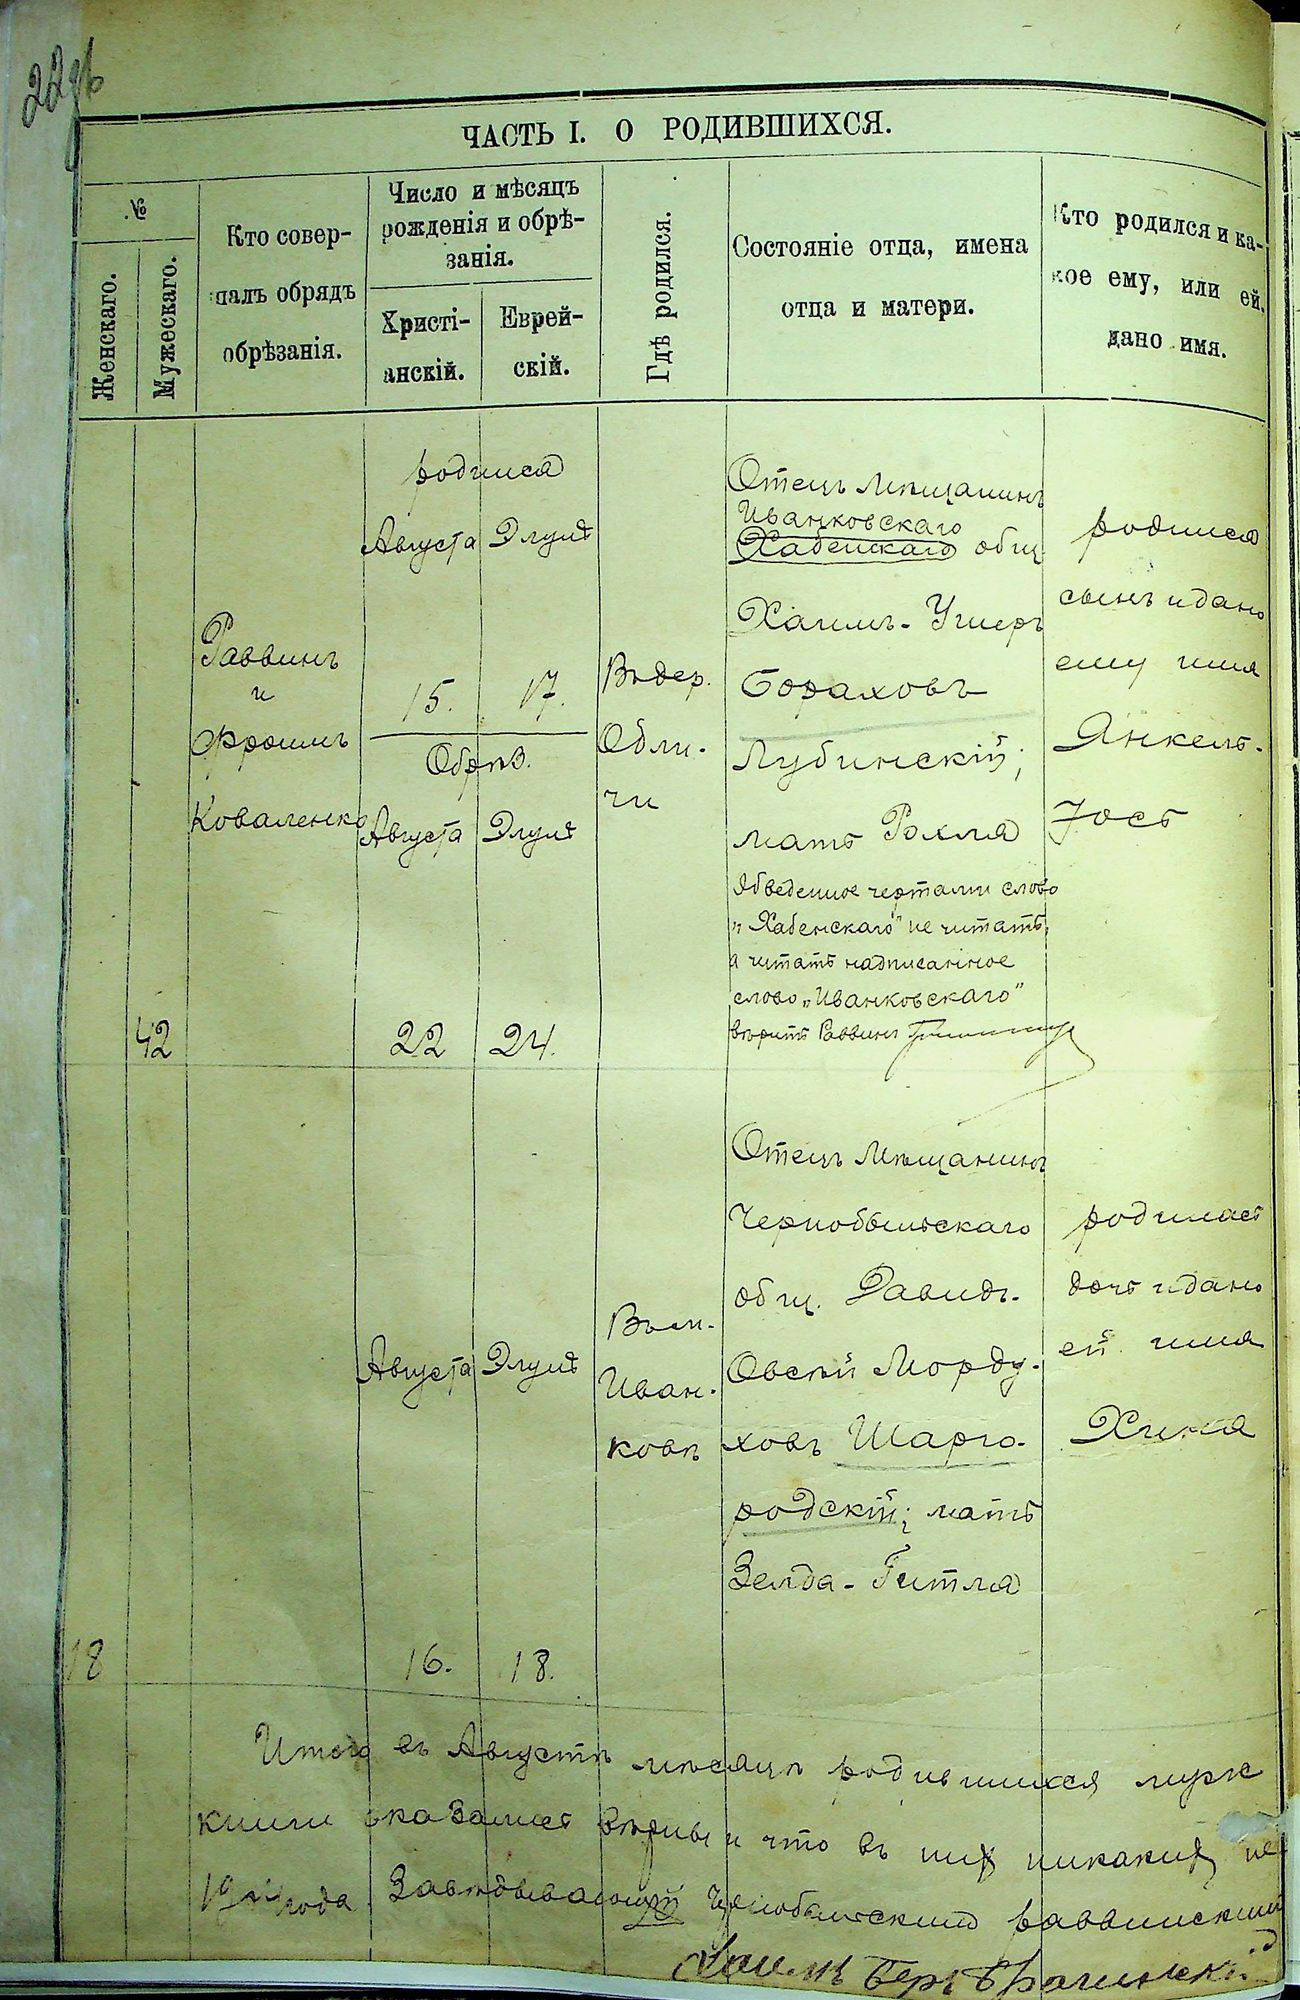 22 об
ЧАСТЬ I. О РОДИВШИХСЯ.
№
Женскаго.
Мужескаго.
Кто совер-
шалъ обрядъ
обрѣзанія.
Число и мѣсяцъ
рожденія и обрѣ-
занія.
Христі-
анскій.
Еврей-
скій.
Гдѣ родился.
Состояніе отца, имена
отца и матери.
Кто родился и ка-
кое ему, или ей,
дано имя.
42
Раввинъ
и
Фроимъ
Коваленко
родился
Августа Элуля
15. 17.
Обрѣз.
Августа Элуля
22 24.
Въ дер.
Обли-
чи
Отецъ Мѣщанинъ
Иванковскаго
Хабенскаго общ
Хаимъ-Ушеръ
Бораховъ
Лубинскій;
мать Рохля
Обведенное чертами слово
„Хабенскаго" не читать,
а читать надписанное
слово „Иванковскаго"
вѣрить Раввинъ
родился
сынъ и дано
ему имя
Янкель-
Іось
18
Августа Элуля
16. 18.
Въ м.
Иван-
ковѣ
Отецъ Мѣщанинъ
Чернобыльскаго
общ. Давидъ-
Овсѣй Морду-
ховъ Шарго-
родскій; мать
Зелда-Гитля
родилась
дочь и дано
ей имя
Хиня
Итого въ Августѣ мѣсяцѣ родившихся муж
книги оказались вѣрны и что въ них никаких не
19 года. Завѣдывающій Чернобыльскимъ раввинскимъ
Хаимъ Беръ Брагинскій